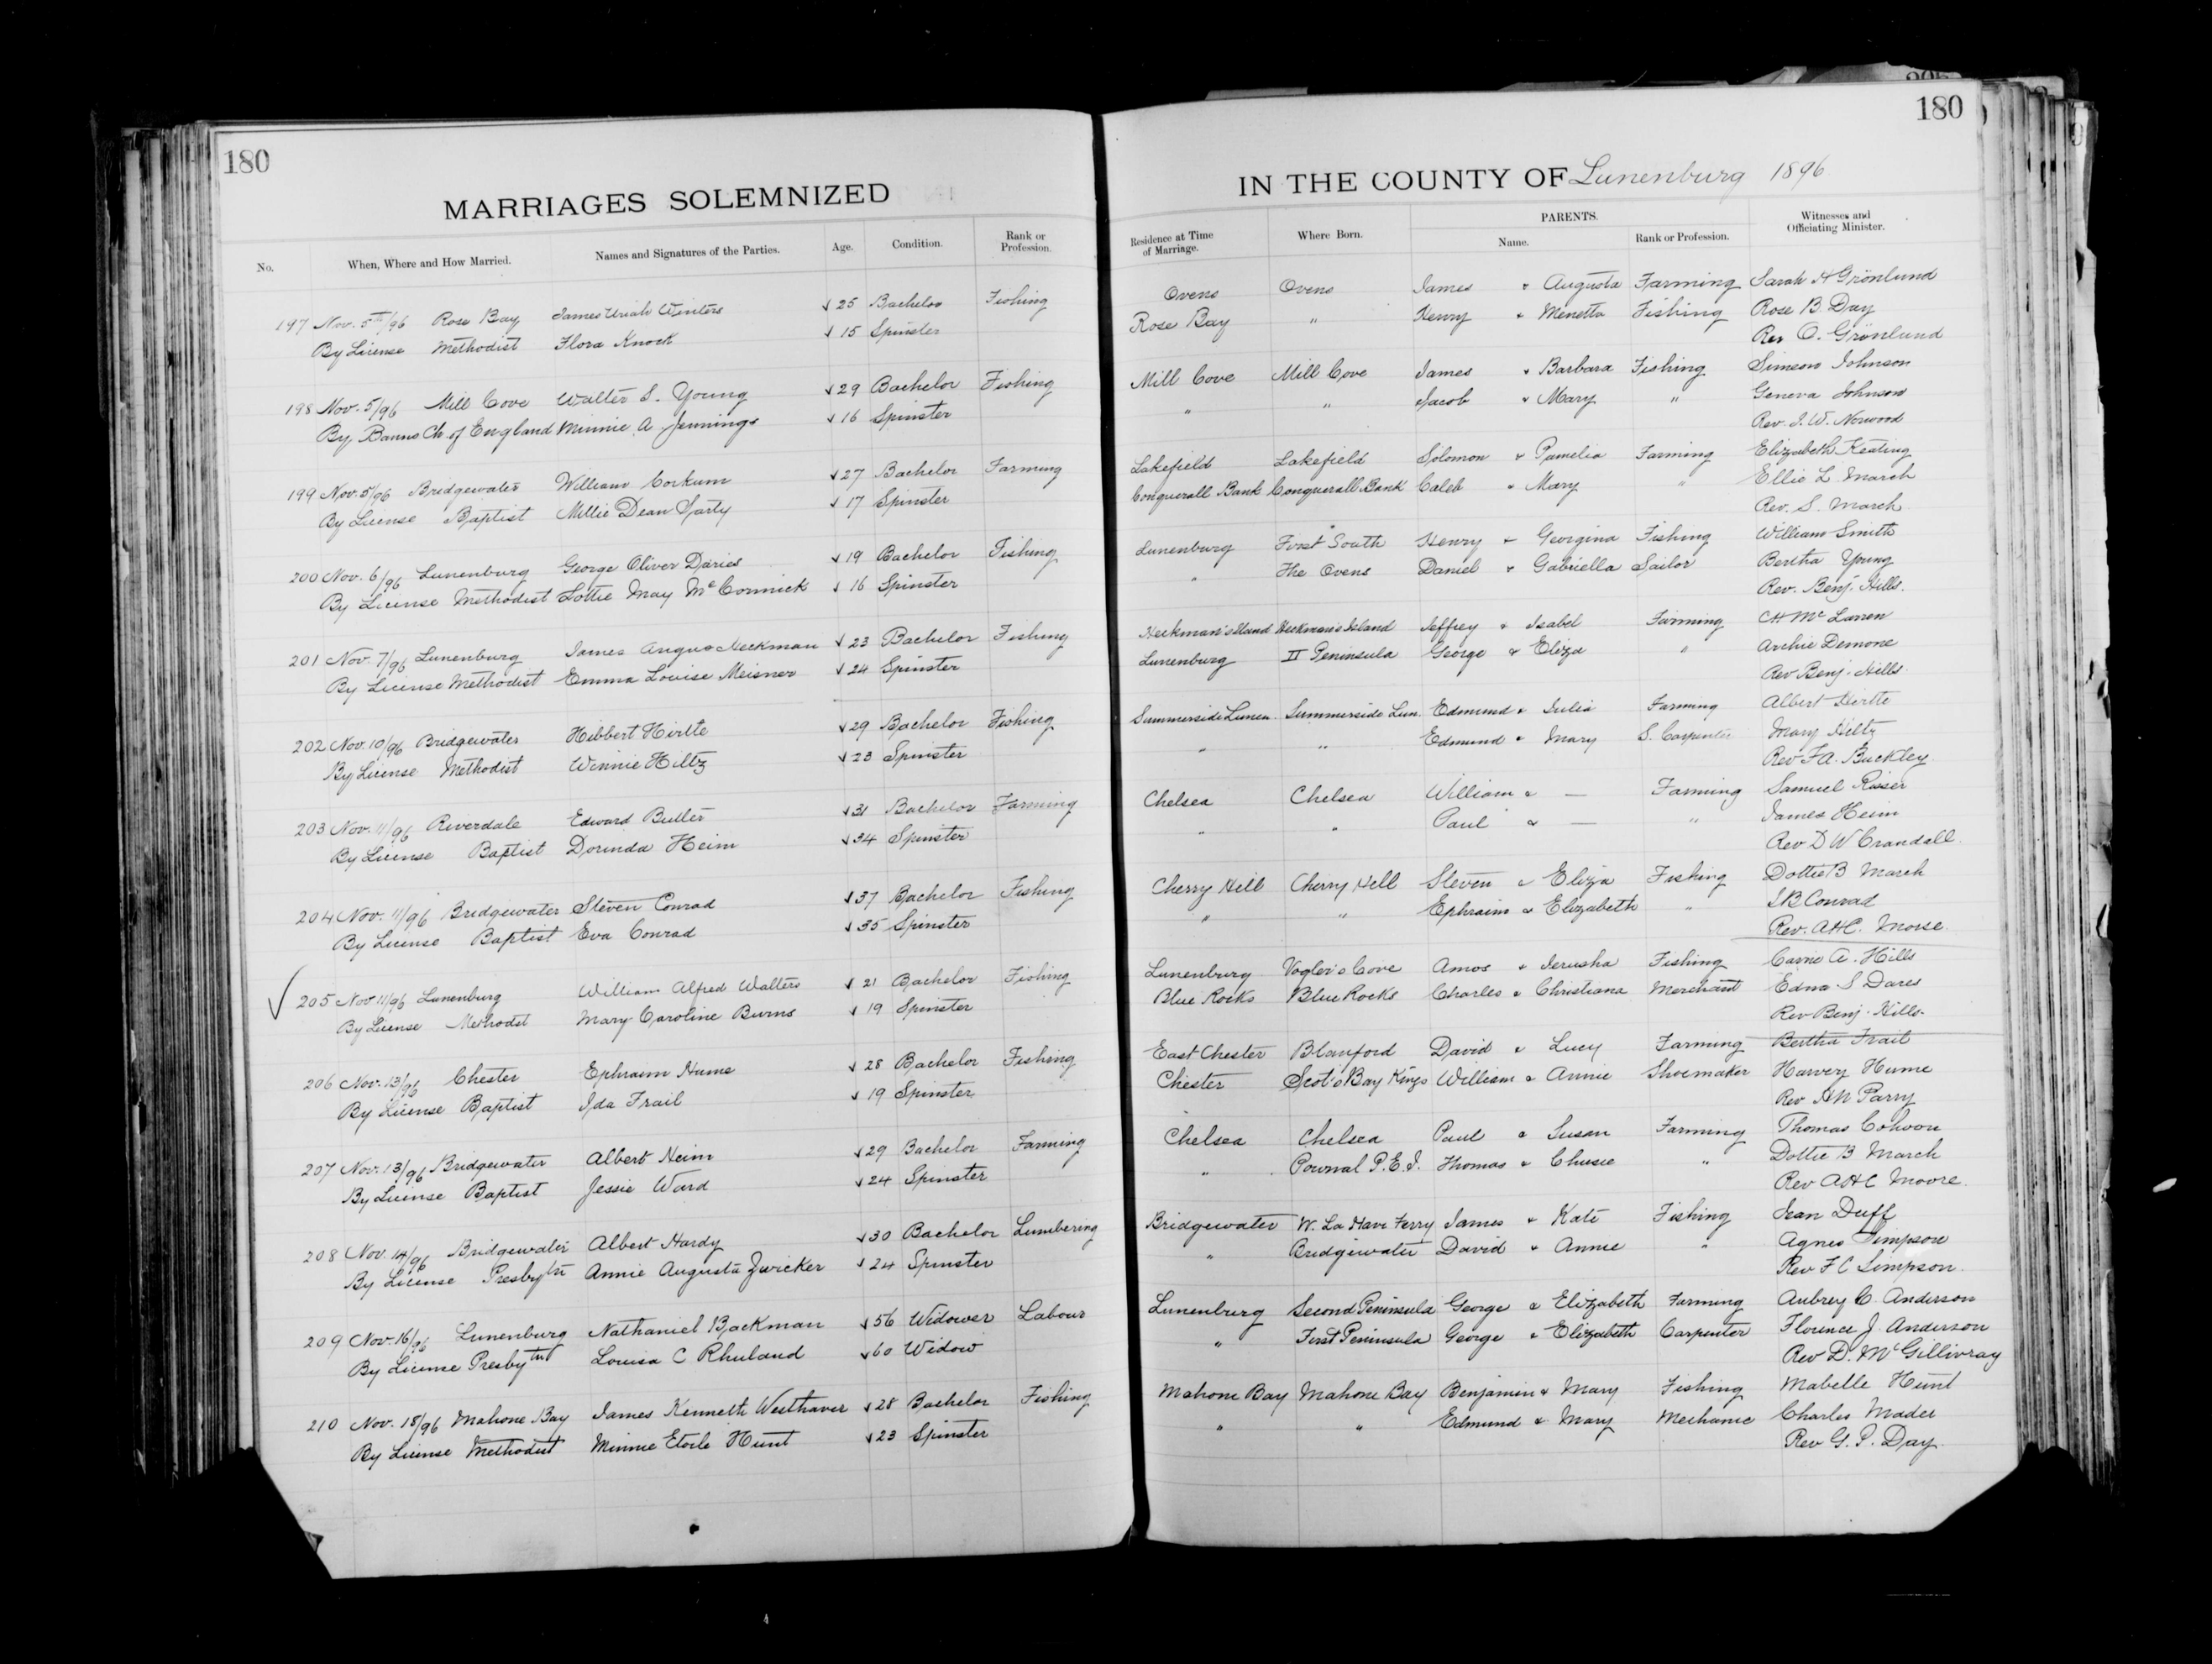 180
180
MARRIAGES SOLEMNIZED
IN THE COUNTY OF Lunenburg 1896
No. When, Where and How Married. Names and Signatures of the Parties. Age. Condition. Rank or Profession. Residence at Time of Marriage. Where Born. PARENTS. Name. Rank or Profession. Witnesses and Officiating Minister.
197 Nov. 5th/96 Rose Bay James Uriah Winters 25 Bachelor Fishing Ovens Ovens James & Augusta Farming Sarah H Grönlund
By License Methodist Flora Knock 15 Spinster Rose Bay " Henry & Menetta Fishing Rose B. Day
Rev O. Grönlund
198 Nov. 5/96 Mill Cove Walter S. Young 29 Bachelor Fishing Mill Cove Mill Cove James & Barbara Fishing Simeon Johnson
By Banns Ch. of England Minnie A Jennings 16 Spinster " " Jacob & Mary " Geneva Johnson
Rev. I. W. Norwood
199 Nov. 5/96 Bridgewater William Corkum 27 Bachelor Farming Lakefield Lakefield Solomon & Pamelia Farming Elizabeth Keating
By License Baptist Millie Dean Sarty 17 Spinster Conquerall Bank Conquerall Bank Caleb & Mary " Ellie L. March
Rev. S. March
200 Nov. 6/96 Lunenburg George Oliver Daries 19 Bachelor Fishing Lunenburg First South Henry & Georgina Fishing William Smith
By License Methodist Lottie May McCormick 16 Spinster " The Ovens Daniel & Gabriella Sailor Bertha Young
Rev. Benj. Hills.
201 Nov. 7/96 Lunenburg James Angus Heckman 23 Bachelor Fishing Heckman's Island Heckman's Island Jeffrey & Isabel Farming CH McLarren
By License Methodist Emma Louise Meisner 24 Spinster Lunenburg II Peninsula George & Eliza " Archie Demone
Rev Benj. Hills.
202 Nov. 10/96 Bridgewater Hibbert Hirtte 29 Bachelor Fishing Summerside Lunen. Summerside Lun. Edmund & Julia Farming Albert Hirtte
By License Methodist Winnie Hiltz 23 Spinster " " Edmund & Mary S. Carpenter Mary Hiltz
Rev F.A. Buckley.
203 Nov. 11/96 Riverdale Edward Butler 31 Bachelor Farming Chelsea Chelsea William & — Farming Samuel Risser
By License Baptist Dorinda Heim 34 Spinster " " Paul & — " James Heim
Rev D W Crandall.
204 Nov. 11/96 Bridgewater Steven Conrad 37 Bachelor Fishing Cherry Hill Cherry Hill Steven & Eliza Fishing Dottie B March
By License Baptist Eva Conrad 35 Spinster " " Ephraim & Elizabeth " S B Conrad
Rev. A.H.C. Morse.
205 Nov 11/96 Lunenburg William Alfred Walters 21 Bachelor Fishing Lunenburg Vogler's Cove Amos & Jerusha Fishing Carrie A. Hills
By License Methodst Mary Caroline Burns 19 Spinster Blue Rocks Blue Rocks Charles & Christiana Merchant Edna S Dares
Rev Benj. Hills.
206 Nov. 13/96 Chester Ephraim Hume 28 Bachelor Fishing East Chester Blanford David & Lucy Farming Bertha Frail
By License Baptist Ida Frail 19 Spinster Chester Scot's Bay Kings William & Annie Shoemaker Harvey Hume
Rev HN Parry
207 Nov. 13/96 Bridgewater Albert Heim 29 Bachelor Farming Chelsea Chelsea Paul & Susan Farming Thomas Cohoon
By License Baptist Jessie Ward 24 Spinster " Pownal P.E.I. Thomas & Chusie " Dottie B March
Rev AHC Moore.
208 Nov. 14/96 Bridgewater Albert Hardy 30 Bachelor Lumbering Bridgewater W. La Have Ferry James & Kate Fishing Jean Duff
By License Presbytn Annie Augusta Zwicker 24 Spinster " Bridgewater David & Annie " Agnes Simpson
Rev F C Simpson.
209 Nov. 16/96 Lunenburg Nathaniel Backman 56 Widower Labour Lunenburg Second Peninsula George & Elizabeth Farming Aubrey C. Anderson
By License Presbytn Louisa C Rhuland 60 Widow " First Peninsula George & Elizabeth Carpenter Florence J. Anderson
Rev D. McGillivray
210 Nov. 18/96 Mahone Bay James Kenneth Westhaver 28 Bachelor Fishing Mahone Bay Mahone Bay Benjamin & Mary Fishing Mabelle Hunt
By License Methodist Minnie Etoile Hunt 23 Spinster " " Edmund & Mary Mechanic Charles Mader
Rev G. P. Day.